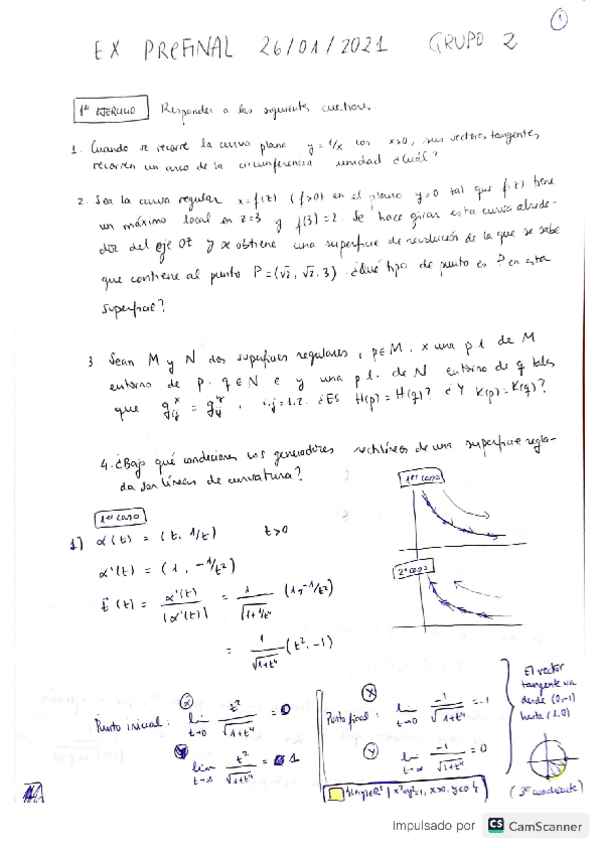 1
EX PREFINAL 26/01/2021 GRUPO 2
1er EJERCICIO Responder a las siguientes cuestiones.
1. Cuando se recorre la curva plana y = 1/x con x>0, sus vectores tangentes
recorren un arco de la circunferencia unidad ¿Cuál?
2. Sea la curva regular x = f(z) (f>0) en el plano y=0 tal que f(z) tiene
un máximo local en z=3 y f(3)=2. Se hace girar esta curva alrede-
dor del eje OZ y se obtiene una superficie de revolución de la que se sabe
que contiene al punto P = (√2, √2, 3) ¿Qué tipo de punto es P en esta
superficie?
3 Sean M y N dos superficies regulares, p∈M, x una p.l. de M
entorno de p. q∈N e y una p.l. de N entorno de q tales
que g_ij^x = g_ij^y, i,j=1,2. ¿Es H(p) = H(q)? ¿Y K(p) = K(q)?
4. ¿Bajo qué condiciones los generadores rectilíneos de una superficie regla-
da son líneas de curvatura?
1er caso
1er caso
1) α(t) = (t, 1/t) t>0
α'(t) = (1, -1/t²)
2º caso
t(t) = α'(t)/|α'(t)| = 1/√(1+1/t⁴) (1, -1/t²)
= 1/√(1+t⁴) (t², -1)
Punto inicial: x lim t→0 t²/√(1+t⁴) = 0
y lim t²/√(1+t⁴) = 1
Punto final: x lim t→0 -1/√(1+t⁴) = -1
y lim t→∞ -1/√(1+t⁴) = 0
{(x,y)∈R² | x²+y²=1, x>0, y<0}
El vector
tangente va
desde (0,-1)
hasta (1,0)
(3er cuadrante)
Impulsado por CS CamScanner